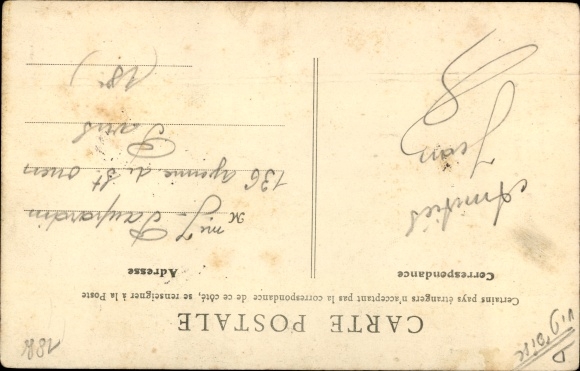 CARTE POSTALE
Certains pays étrangers n'acceptant pas la correspondance de ce côté, se renseigner à la Poste
Correspondance
Amitiés
Jean
Adresse
136 avenue de St Ouen
Paris
(18e)